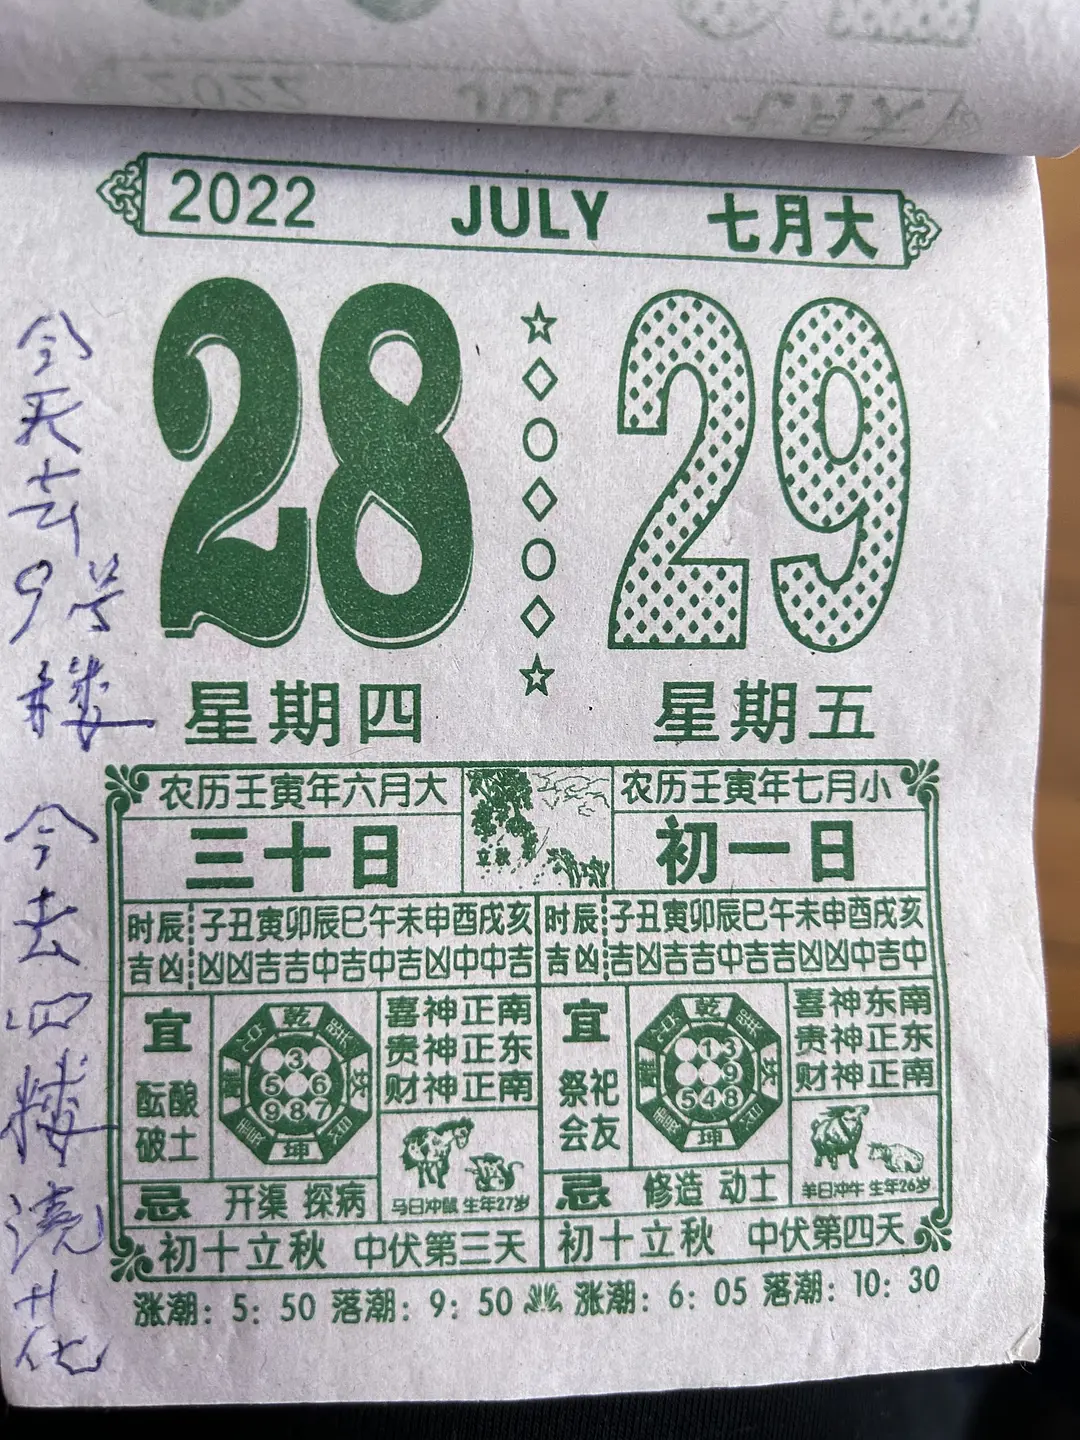 2022 JULY 七月大
28 29
星期四 星期五
农历壬寅年六月大 农历壬寅年七月小
三十日 初一日
立秋
时辰 子丑寅卯辰巳午未申酉戌亥
吉凶 凶凶吉吉中吉中吉凶中中吉
时辰 子丑寅卯辰巳午未申酉戌亥
吉凶 吉凶吉吉中吉吉凶凶中吉中
宜
酝酿
破土
乾
3
5 6
9 8 7
坤
喜神正南
贵神正东
财神正南
马日冲鼠 生年27岁
忌 开渠 探病
初十立秋 中伏第三天
宜
祭祀
会友
乾
1 3
9
5 4 8
坤
喜神东南
贵神正东
财神正南
羊日冲牛 生年26岁
忌 修造 动土
初十立秋 中伏第四天
涨潮：5：50 落潮：9：50 涨潮：6：05 落潮：10：30
今天去9号楼
今去四楼浇花